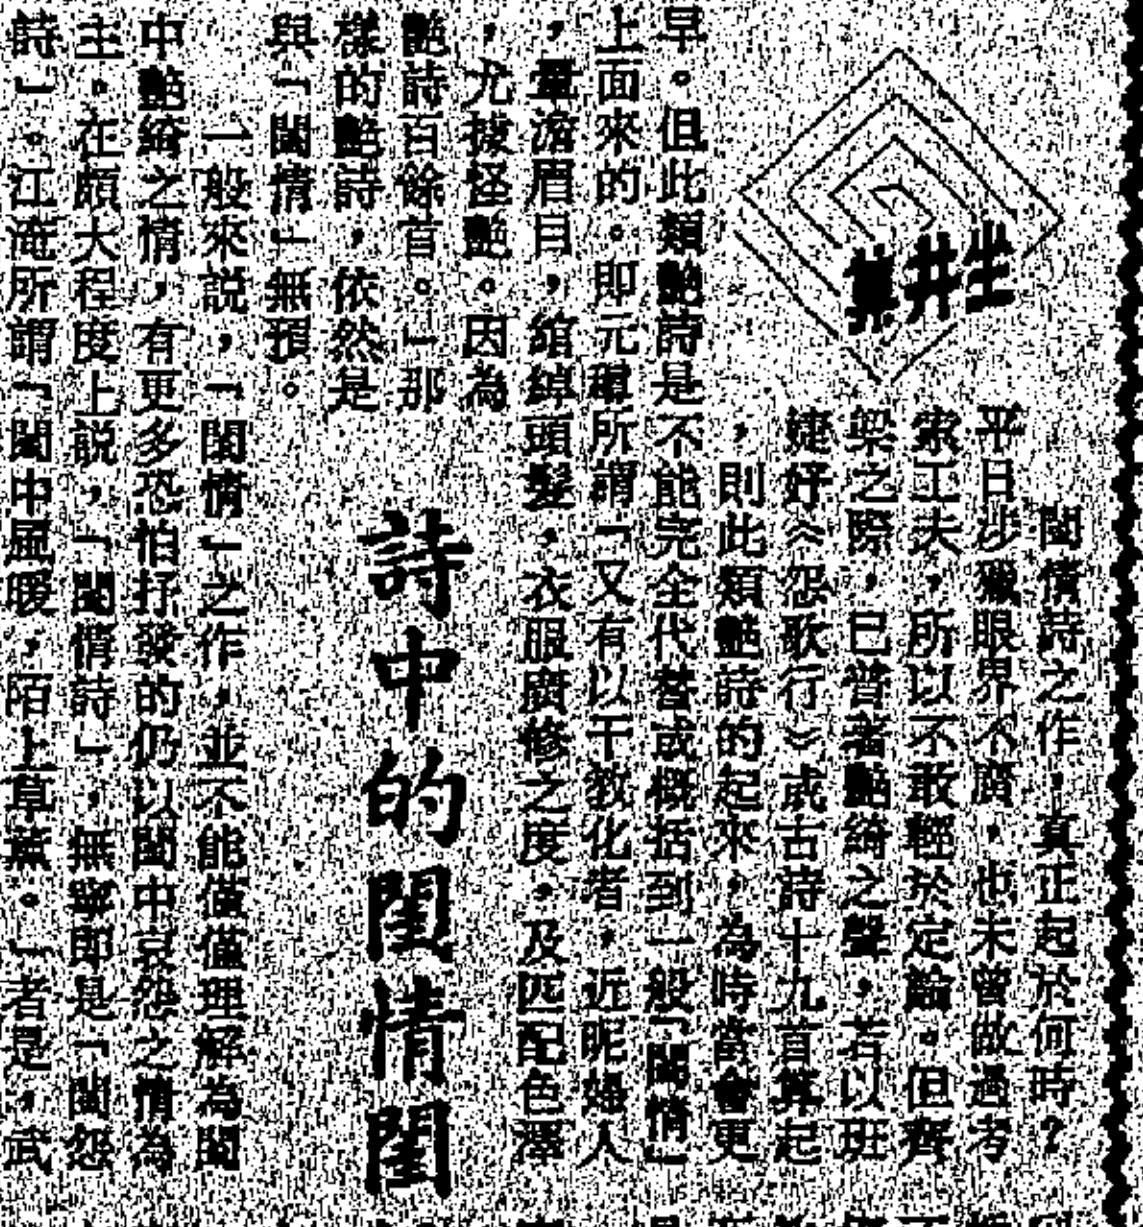 坐井
詩中的閨情閨
閨情詩之作，真正起於何時？
平日涉獵眼界不廣，也未曾做過考
索工夫，所以不敢輕於定論。但齊
梁之際，已普著艷綺之聲，若以班
婕妤《怨歌行》或古詩十九首算起
，則此類艷詩的起來，為時當會更
早。但此類艷詩是不能完全代替或概括到一般「閨情」
上面來的。即元稹所謂「又有以干教化者，近昵婦人
，暈澹眉目，綰綽頭髮，衣服廣修之度，及匹配色澤
，尤據怪艷。因為
艷詩百餘首。」那
樣的艷詩，依然是
與「閨情」無預。
一般來說，「閨情」之作，並不能僅僅理解為閨
中艷綺之情，有更多恐怕抒發的仍以閨中哀怨之情為
主。在頗大程度上說，「閨情詩」，無寧即是「閨怨
詩」。江淹所謂「閨中風暖，陌上草薰。」者是，武